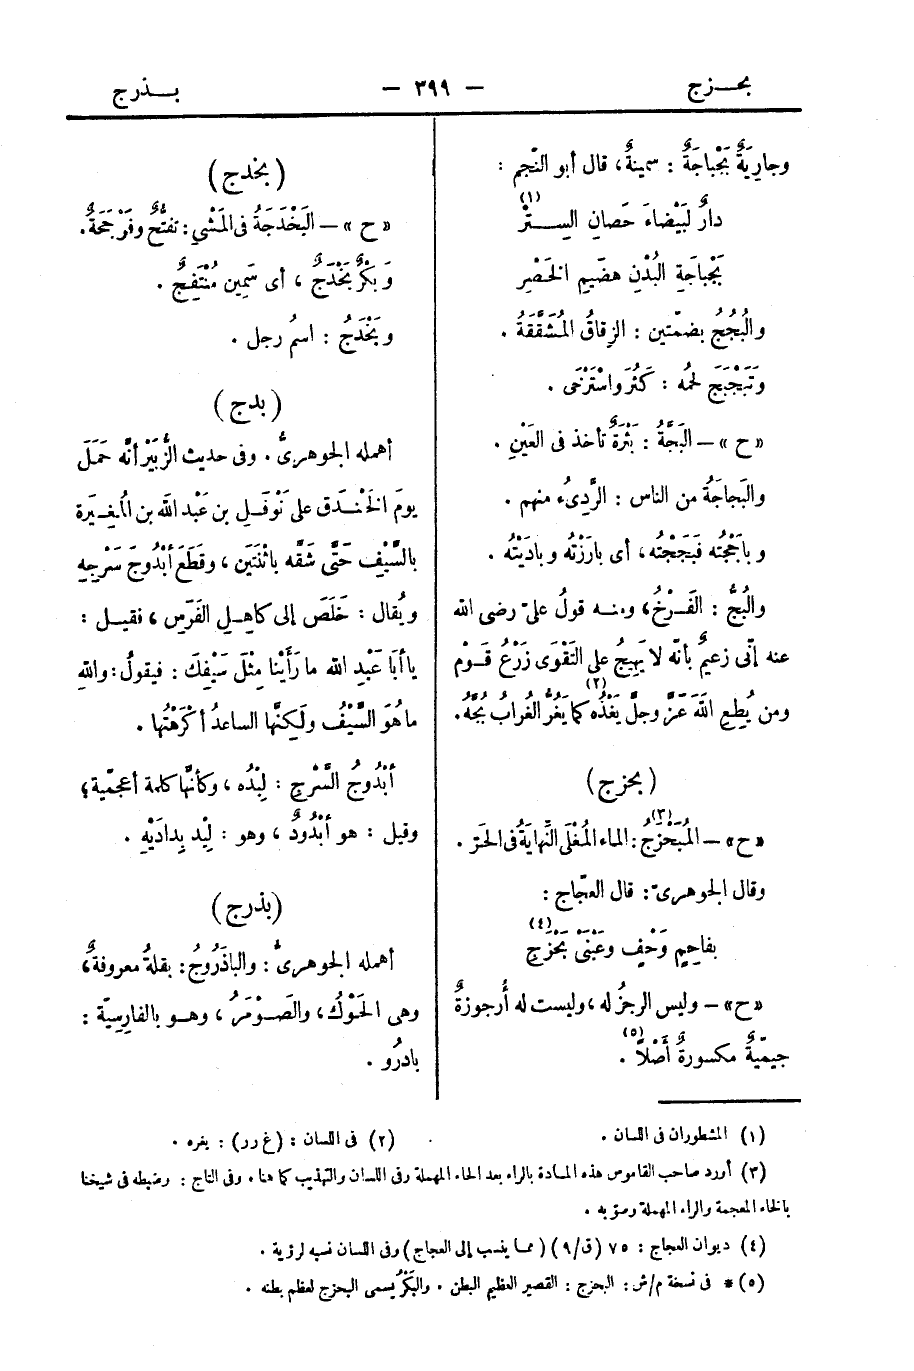 بحزج — ٣٩٩ — بذرج
وجارِيَةٌ بَجْباجَةٌ : سمينةٌ، قال أبو النّجم :
دارٌ لَبَيْضاءَ حَصانِ السِتْرْ (١)
بَجْباجَةِ البُدْنِ هضَيمِ الخَصْرِ
والبُجُجُ بضمّتين : الزِقاقُ المُشَقَّقَةُ .
وتَبَجْبَجَ لحمُه : كَثُرَ واسْتَرْخَى .
«ح» – البَجَّةُ : بَثْرَةٌ تأخذ فى العَيْنِ .
والبَجاجَةُ من الناس : الرَّدِىءُ منهم .
وباجَجْتُه فبَجَجْتُه ، أى بارَزْتُه وبادَيْتُه .
والبُجُّ : الفَرْخُ، ومنه قولُ علىّ رضى الله
عنه إنّى زعيمٌ بأنّه لا يَهِيجُ على التَقْوَى زَرْعُ قَوْم
ومن يُطِعِ اللهَ عَزَّ وجلَّ يَغْذُه كما يَغُرُّ (٢) الغُرابُ بُجَّهُ.
(بحزج)
«ح» – المُبَحْزَجُ (٣) : الماء المُغْلَى النَّهايَةَ فى الحَرّ .
وقال الجوهرىّ : قال العجّاج :
بفاحِمٍ وَحْفٍ وعَيْنَىْ بَحْزَجِ (٤)
«ح» – وليس الرجزُ له ، وليست له أُرجوزةٌ
جيميّةٌ مكسورةٌ أَصْلاً (٥) .
(بخدج)
«ح» – البَخْدَجَةُ فى المَشْىِ : تفتُّحٌ وفَرْجَحَةٌ.
وبَكْرٌ بَخْدَجٌ ، أى سَمِين مُنْتَفِجٌ .
وبَخْدَجُ : اسمُ رجل .
(بدج)
أهمله الجوهرىُّ . وفى حديث الزُّبَيْر أنَّه حَمَلَ
يومَ الخَنْدَق على نَوْفَلِ بن عَبْد الله بن المُغِيرَة
بالسَّيْفِ حَتَّى شَقَّه باثْنَتَين ، وقَطَعَ أُبْدُوجَ سَرْجِهِ
ويُقال : خَلَصَ إلى كاهِلِ الفَرَسِ ، فقيل :
يا أبَا عَبْدِ الله ما رَأَيْنا مِثْلَ سَيْفِكَ : فيقولُ : واللهِ
ما هُوَ السَّيْفُ ولَكِنَّها الساعدُ أَكْرَهْتُها .
أُبْدُوجُ السَّرْجِ : لِبْدُه ، وكأنّها كلمة أعجمّية ؛
وقيل : هو أُبْدُودٌ ، وهو : لِبْد بِدادَيْهِ .
(بذرج)
أهمله الجوهرىُّ : والباذَرُوجُ : بقلةٌ معروفةٌ ،
وهى الحَوْكُ ، والصَوْمَرُ ، وهو بالفارِسِيّة :
بادرُو .
(١) المشطوران فى اللسان . (٢) فى اللسان : (غ رر) : يغره .
(٣) أورد صاحب القاموس هذه المادة بالراء بعد الحاء المهملة وفى اللسان والتهذيب كما هنا . وفى التاج : وضبطه فى شيخنا
بالخاء المعجمة والراء المهملة وصوّبه .
(٤) ديوان العجاج : ٧٥ (ق/٩) (مما ينسب إلى العجاج) وفى اللسان نسبه لرؤبة .
(٥) * فى نسخة م/ش : البحزج : القصير العظيم البطن . والبَكْرُ يسمى البحزج لعظم بطنه .